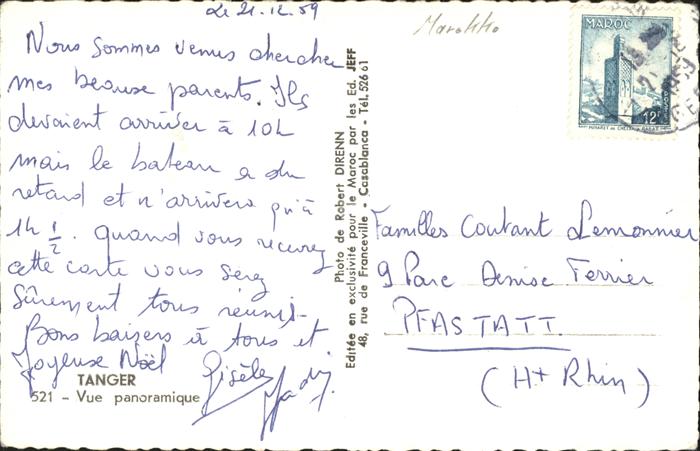 Le 21.12.59
Nous sommes venus chercher
mes beaux parents. Ils
devaient arriver à 10h
mais le bateau a du
retard et n'arrivera qu'à
1h 1/2. quand vous recevrez
cette carte vous serez
sûrement tous réunis.
Bons baisers à tous et
Joyeuse Noël
Gisèle
TANGER
521 - Vue panoramique
Photo de Robert DIRENN
Editée en exclusivité pour le Maroc par les Ed. JEFF
48, rue de Franceville - Casablanca - Tél. 526 61
Marokko
MAROC
12F
Familles Coutant Lemonnier
9 Parc Denise Ferrier
PFASTATT
(Ht Rhin)